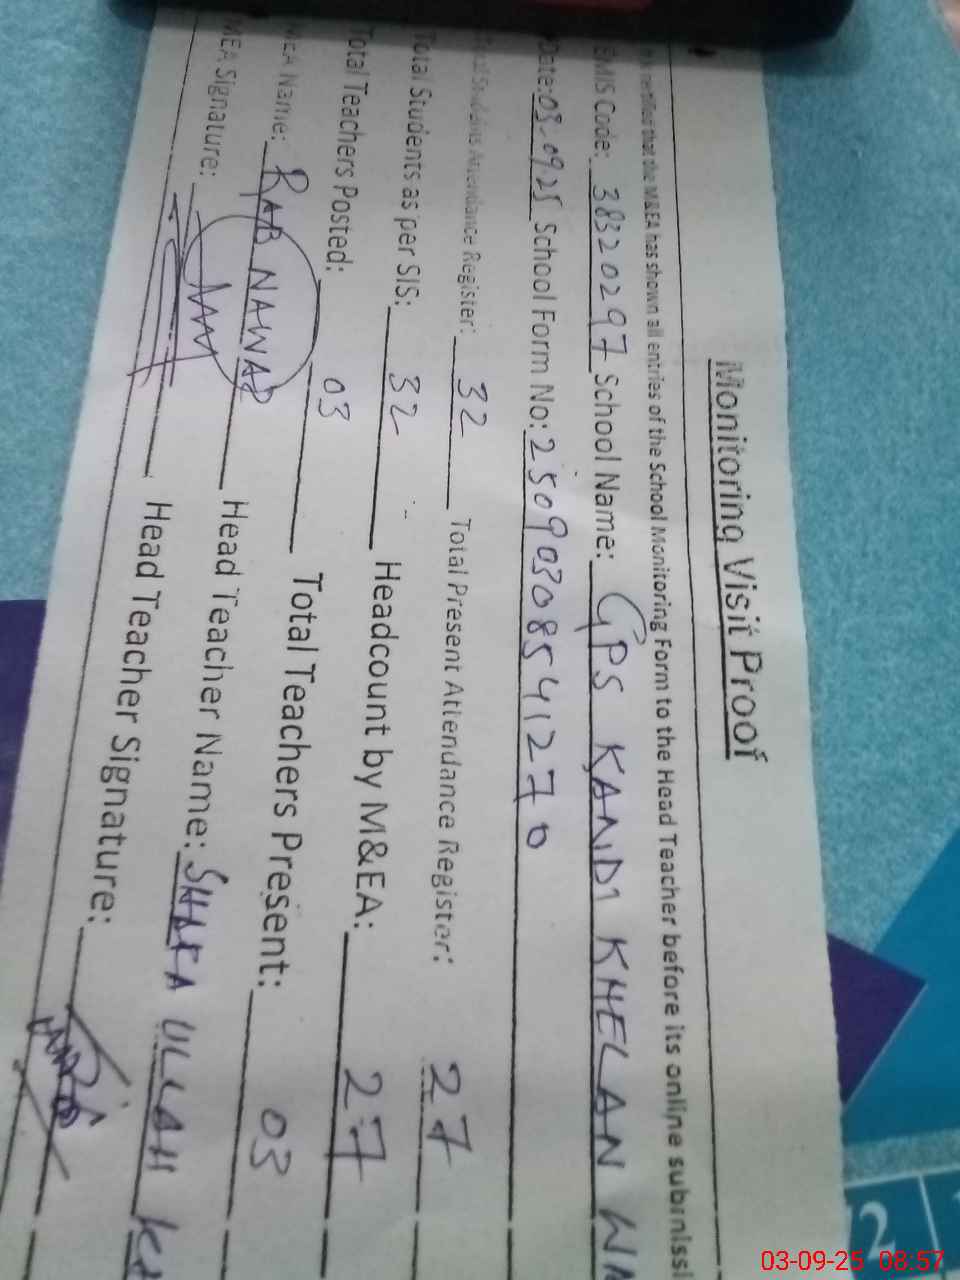 Monitoring Visit Proof
that the M&EA has shown all entries of the School Monitoring Form to the Head Teacher before its online submissi
EMIS Code: 38320297 School Name: GPS KANDI KHELAN
Date: 03-09-25 School Form No: 25090308541270
Total Students Attendance Register: 32 Total Present Attendance Register: 27
Total Students as per SIS: 32 Headcount by M&EA: 27
Total Teachers Posted: 03 Total Teachers Present: 03
MEA Name: RAB NAWAZ Head Teacher Name: SHAFA ULLAH
MEA Signature: Head Teacher Signature:
2
03-09-25 08:57